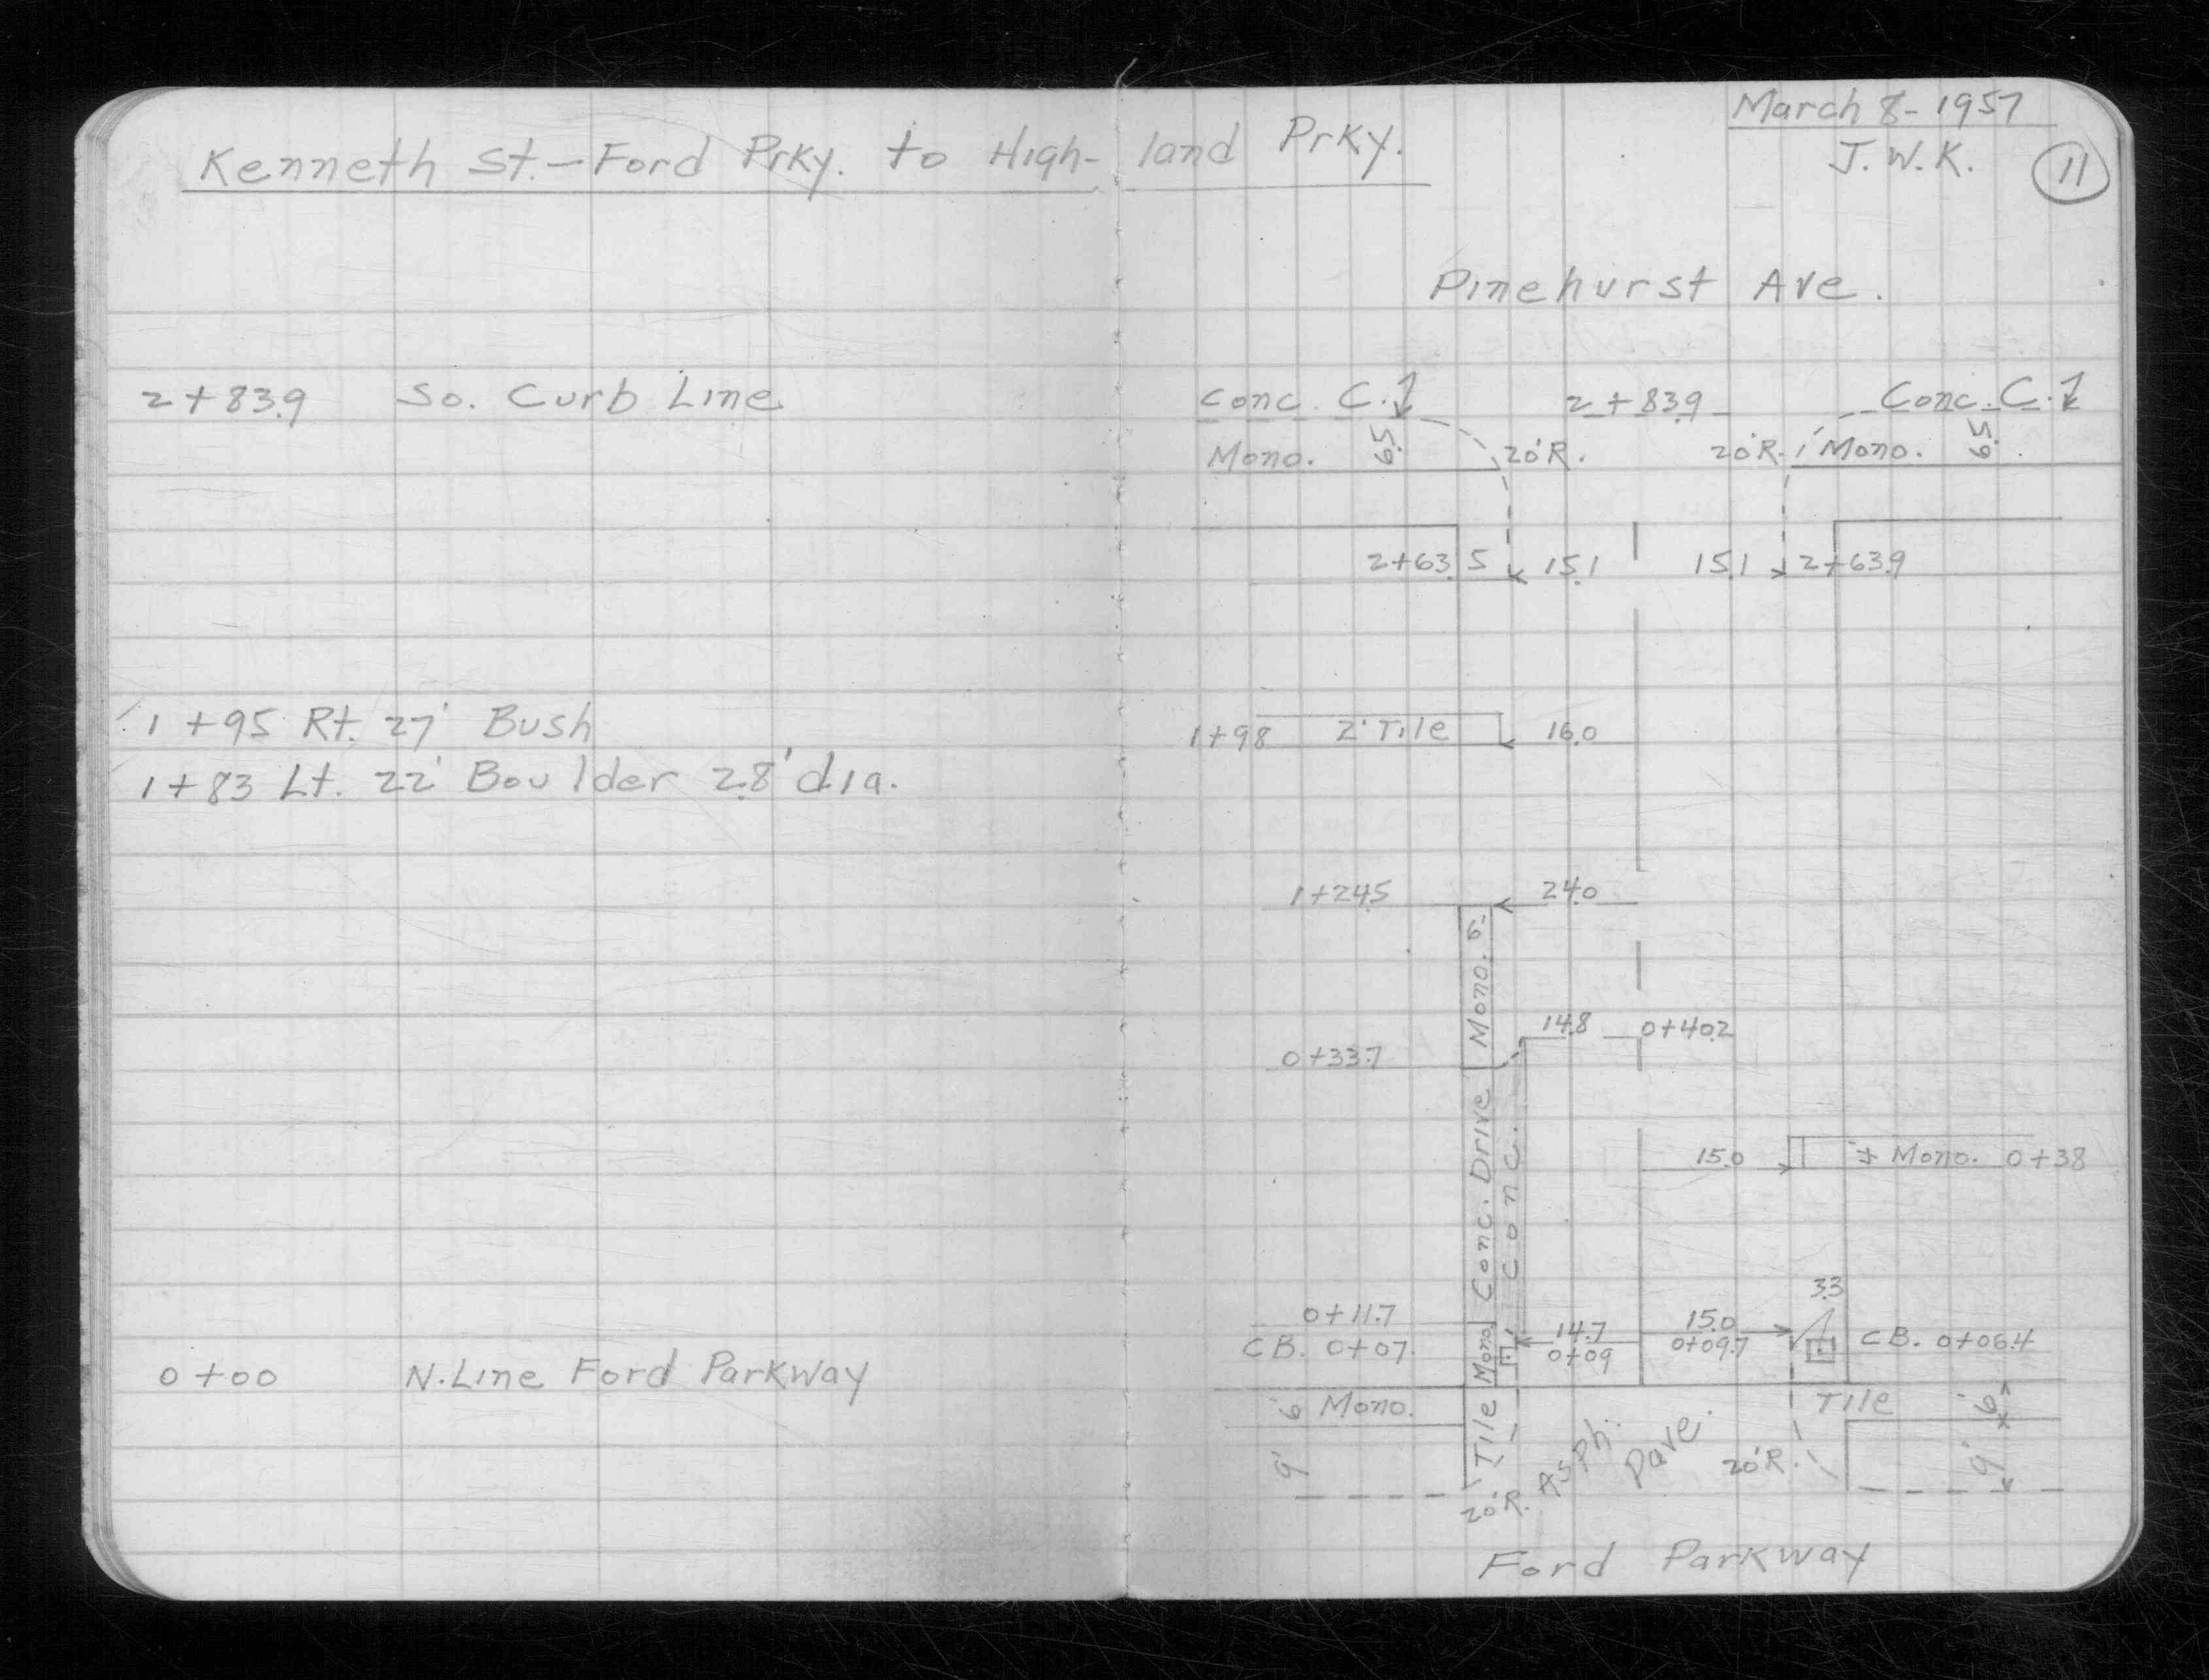 March 8-1957
Kenneth St.-Ford Prky. to High-land Prky.
J.W.K.
11
Pinehurst Ave.
2+83.9 So. Curb Line
Conc. C. 2+83.9 Conc. C.
Mono. 6.5 20'R. 20'R. Mono. 6.5
2+63.5 15.1 15.1 2+63.9
1+95 Rt. 27' Bush
1+98 2' Tile 16.0
1+83 Lt. 22' Boulder 2.8' dia.
1+24.5 24.0
Mono. 6'
14.8 0+40.2
0+33.7
Conc. Drive
Conc.
15.0 Mono. 0+38
3.3
0+11.7 14.7 15.0
CB. 0+07 Mono. 0+09 0+09.7 CB. 0+06.4
0+00 N. Line Ford Parkway
6' Mono. Tile Tile 6'
9' Asph. Pave. 20'R. 9'
20'R.
Ford Parkway